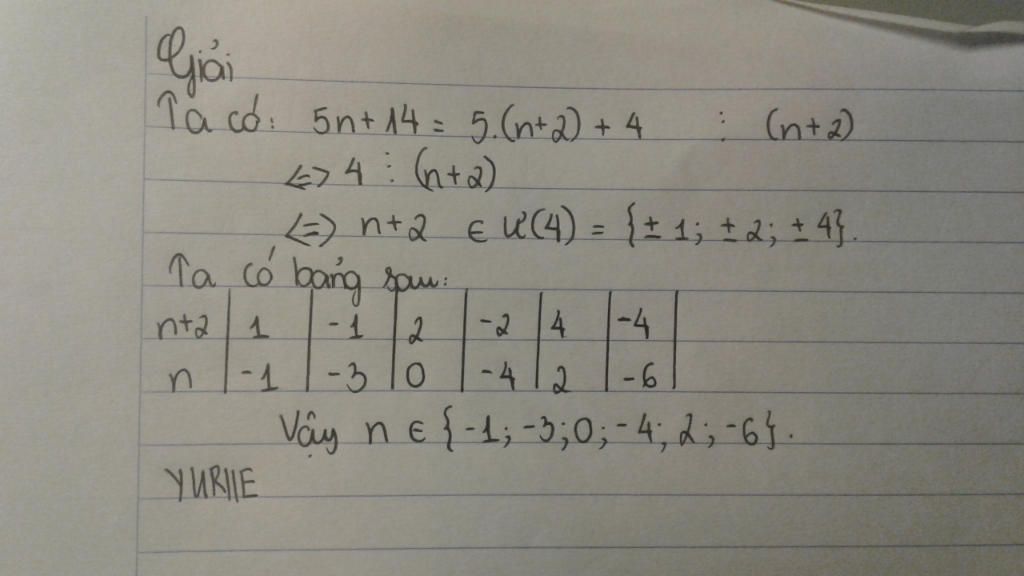 Giải
Ta có: 5n+14 = 5.(n+2) + 4 ⋮ (n+2)
<=> 4 ⋮ (n+2)
<=> n+2 ∈ Ư(4) = {± 1; ± 2; ± 4}.
Ta có bảng sau:
n+2 | 1 | -1 | 2 | -2 | 4 | -4 |
n | -1 | -3 | 0 | -4 | 2 | -6 |
Vậy n ∈ {-1; -3; 0; -4; 2; -6}.
YURIIE